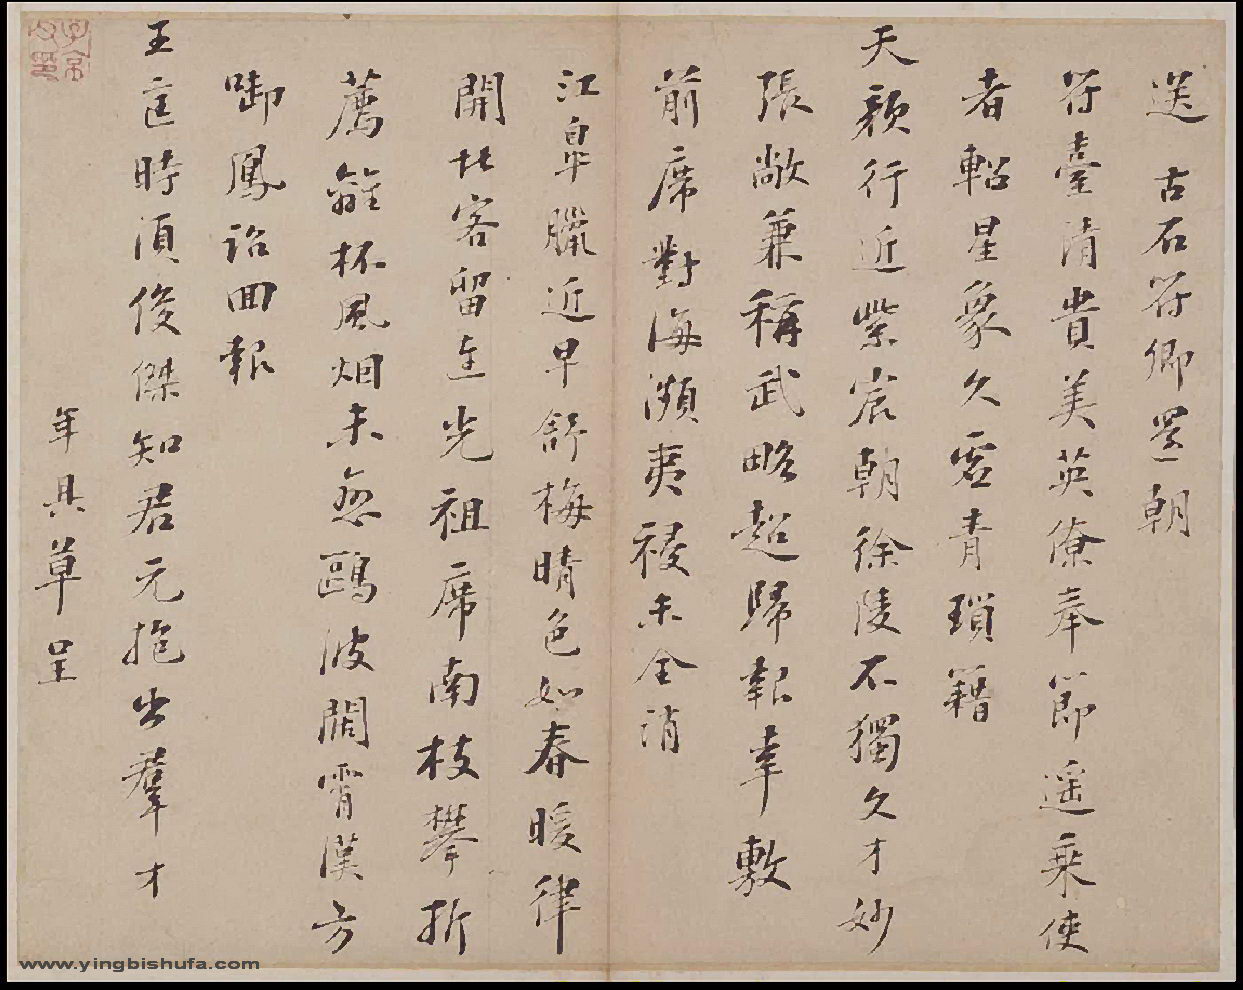 送 古石符卿還朝
符臺清貴美英僚奉節遥乘使
者軺星象久虚青瑣籍
天顏行近紫宸朝徐陵不獨文才妙
張敞兼稱武略超歸報幸敷
前席對海瀕夷祲未全消
江皐臘近早舒梅晴色如春暖律
開北客留連光祖席南枝攀折
薦離杯風烟未忽鷗波闊霄漢方
啣鳳詔囬報
王匡時須俊傑知君元抱出羣才
年具草呈
子京父印
www.yingbishufa.com